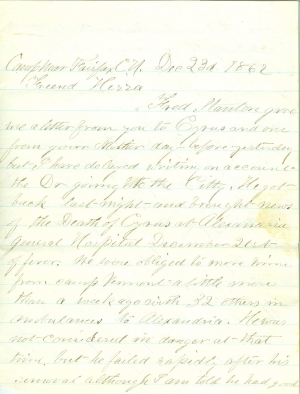 Camp Near Fairfax C.H. Dec 23d 1862
Friend Hezza
Fred Manton gave
me a letter from you to Cyrus and one
from youre Mother day before yesterday
but I have delayed writing on account
the Dr going to the City. He got
back last night and brought news
of the Death of Cyrus at Alexandria
General Hospital December 21st
of fever. We were obliged to move him
from camp Vermont a little more
than a week ago with 32 others in
ambulances to Alexandria. He was
not considered in danger at that
time. but he failed rapidly after his
removal although I am told he had good